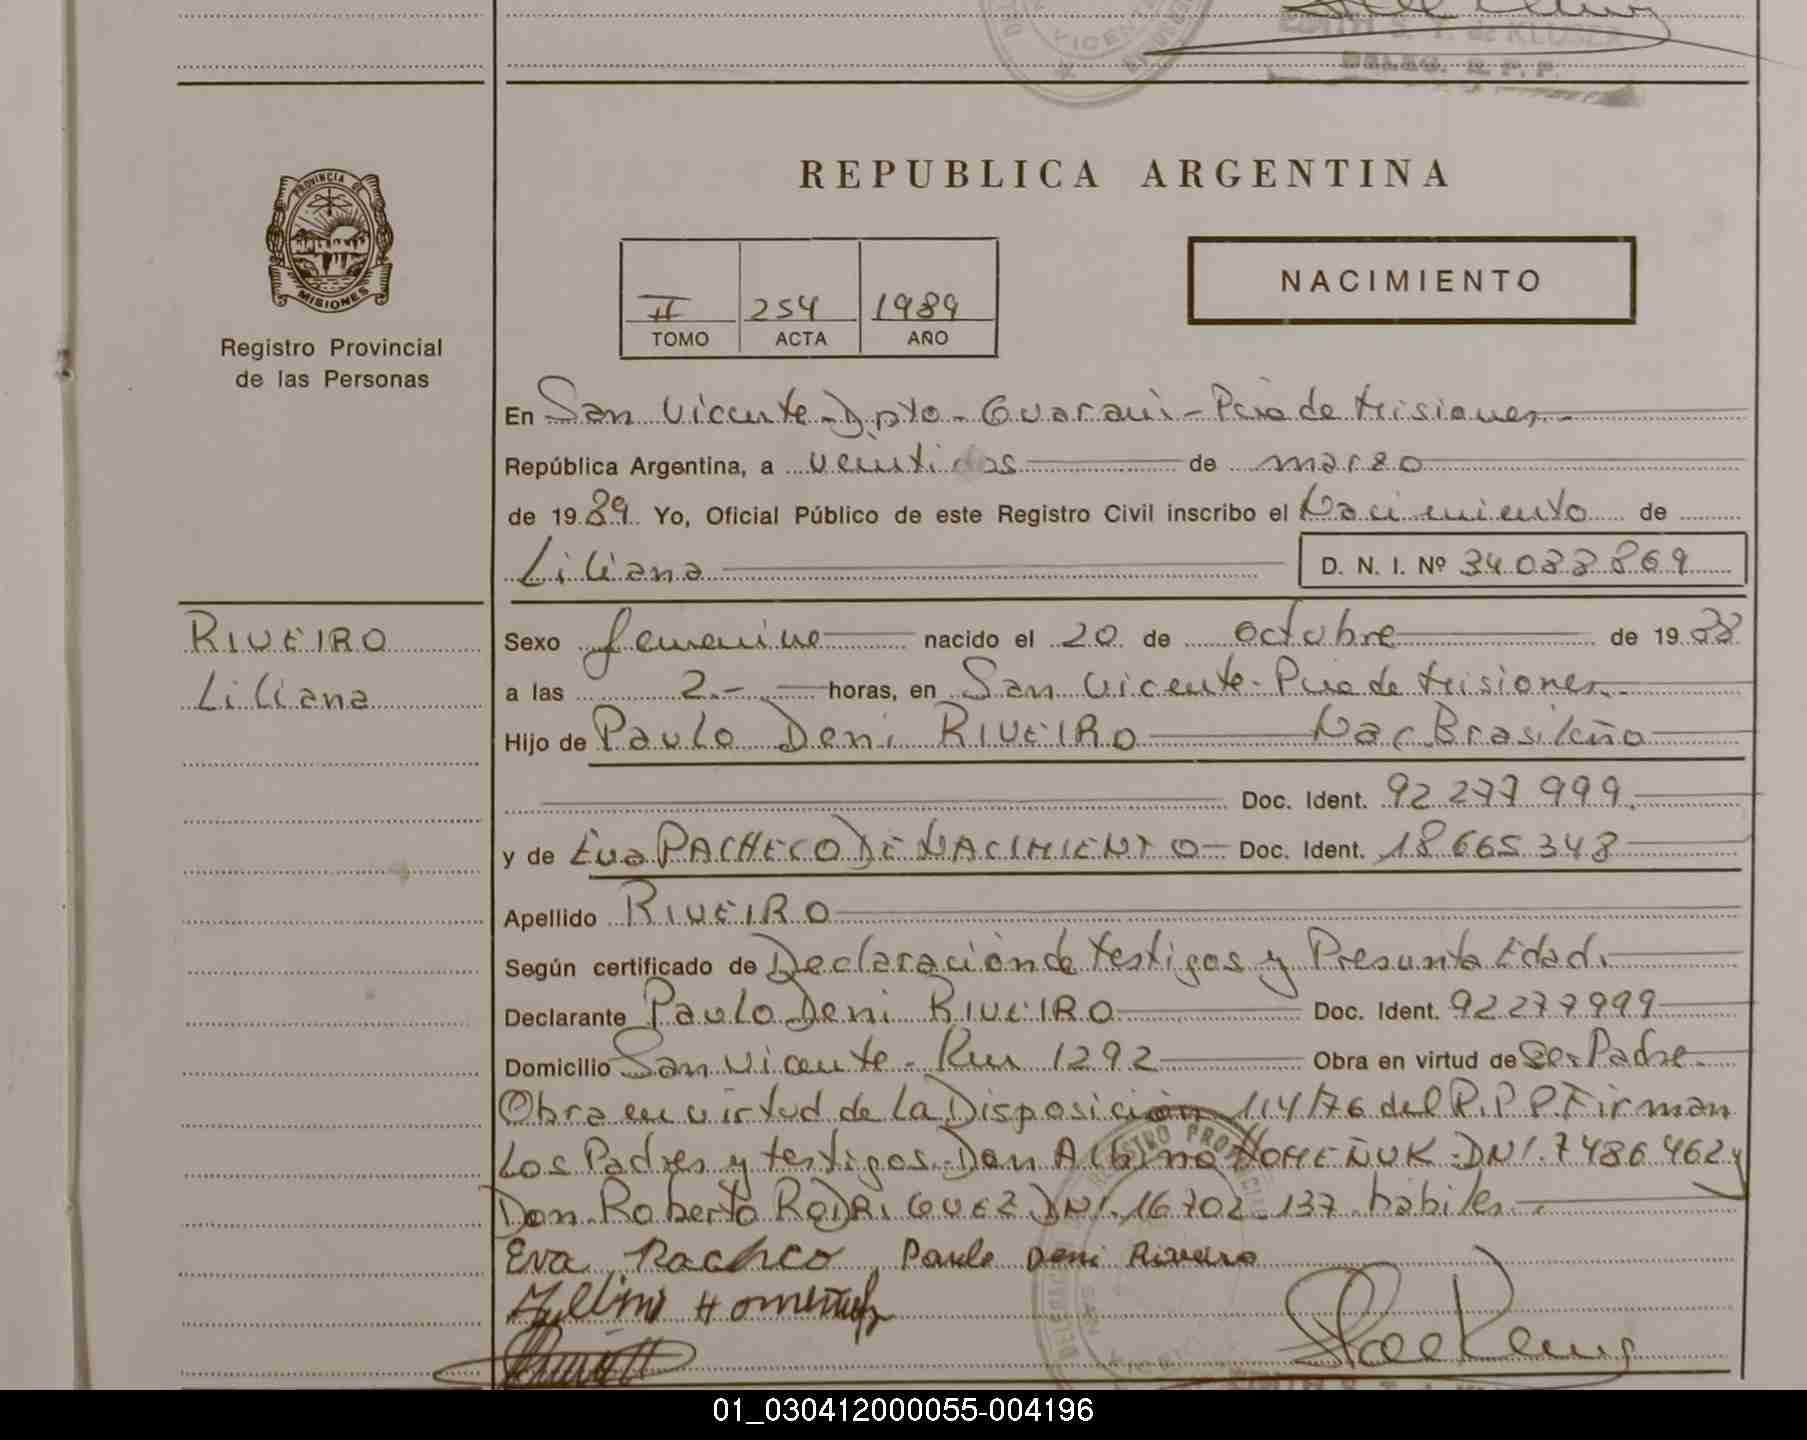 VICEN
EDITH S. T. de KLUSER
DELEG. R. P. P.
PROVINCIA DE
MISIONES
Registro Provincial
de las Personas
REPUBLICA ARGENTINA
II 254 1989
TOMO ACTA AÑO
NACIMIENTO
En San Vicente - Dpto - Guarani - Pcia de Misiones.-
República Argentina, a veintidos de marzo
de 19 89 Yo, Oficial Público de este Registro Civil inscribo el Nacimiento de
Liliana D. N. I. Nº 34 033 869
RIVEIRO
Liliana
Sexo femenino nacido el 20 de octubre de 19 88
a las 2.- horas, en San Vicente - Pcia de Misiones.-
Hijo de Paulo Deni RIVEIRO Nac. Brasileño
Doc. Ident. 92 277 999.
y de Eva PACHECO DE NACIMIENTO - Doc. Ident. 18 665 348
Apellido RIVEIRO
Según certificado de Declaración de testigos y Presunta Edad.
Declarante Paulo Deni RIVEIRO Doc. Ident. 92 277 999
Domicilio San Vicente - Km 1292 Obra en virtud de Ser Padre.
Obra en virtud de La Disposición 114/76 del R.P.P Firman
Los Padres y testigos. Don Albino HOMEÑUK - DNI. 7 486 462 y
Don Roberto RODRIGUEZ DNI. 16 702 137 habiles.-
Eva Pacheco Paulo Deni Riveiro
Albino Homeñuk
REGISTRO PROVINCIAL
01_030412000055-004196